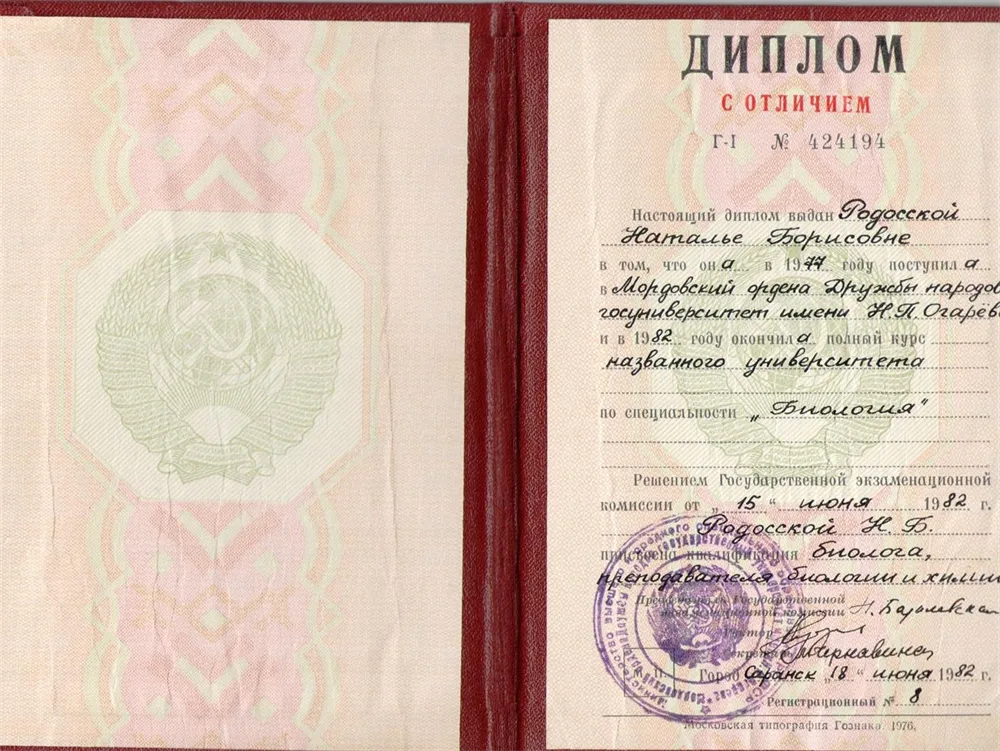 ДИПЛОМ
С ОТЛИЧИЕМ
Г-I № 424194
Настоящий диплом выдан Родосской
Наталье Борисовне
в том, что она в 1977 году поступила
в Мордовский ордена Дружбы народов
госуниверситет имени Н.П.Огарёва
и в 1982 году окончила полный курс
названного университета
по специальности „Биология"
Решением Государственной экзаменационной
комиссии от „15" июня 1982 г.
Родосской Н.Б.
присвоена квалификация биолога,
преподавателя биологии и химии
Председатель Государственной
экзаменационной комиссии
Ректор
Секретарь
М.П. Город Саранск „18" июня 1982 г.
Регистрационный № 8
Московская типография Гознака. 1976.